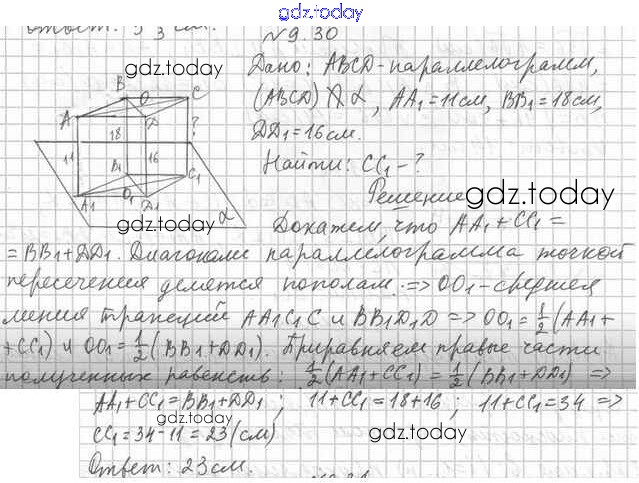 gdz.today
ответ: 5 3 см.
N9.30
gdz.today
Дано: ABCD-параллелограмм,
(ABCD) ∦ α, AA₁=11см, BB₁=18см,
DD₁=16см.
Найти: CC₁-?
Решение
gdz.today
B
O
C
A
D
18
?
11
16
B₁
C₁
A₁
O₁
D₁
α
gdz.today
Докажем, что AA₁+CC₁=
=BB₁+DD₁. Диагонали параллелограмма точкой
пересечения делятся пополам. => OO₁-средняя
линия трапеций AA₁C₁C и BB₁D₁D => OO₁=½(AA₁+
+CC₁) и OO₁=½(BB₁+DD₁). Приравняем правые части
полученных равенств: ½(AA₁+CC₁)=½(BB₁+DD₁) =>
AA₁+CC₁=BB₁+DD₁; 11+CC₁=18+16; 11+CC₁=34 =>
gdz.today
CC₁=34-11=23(см)
gdz.today
Ответ: 23см.